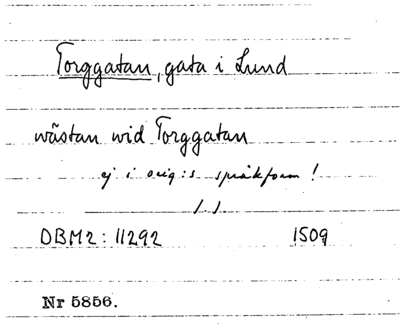 Torggatan, gata i Lund
wästan wid Torggatan
ej i orig:s språkform!
DBM2: 11292 1509
Nr 5856.